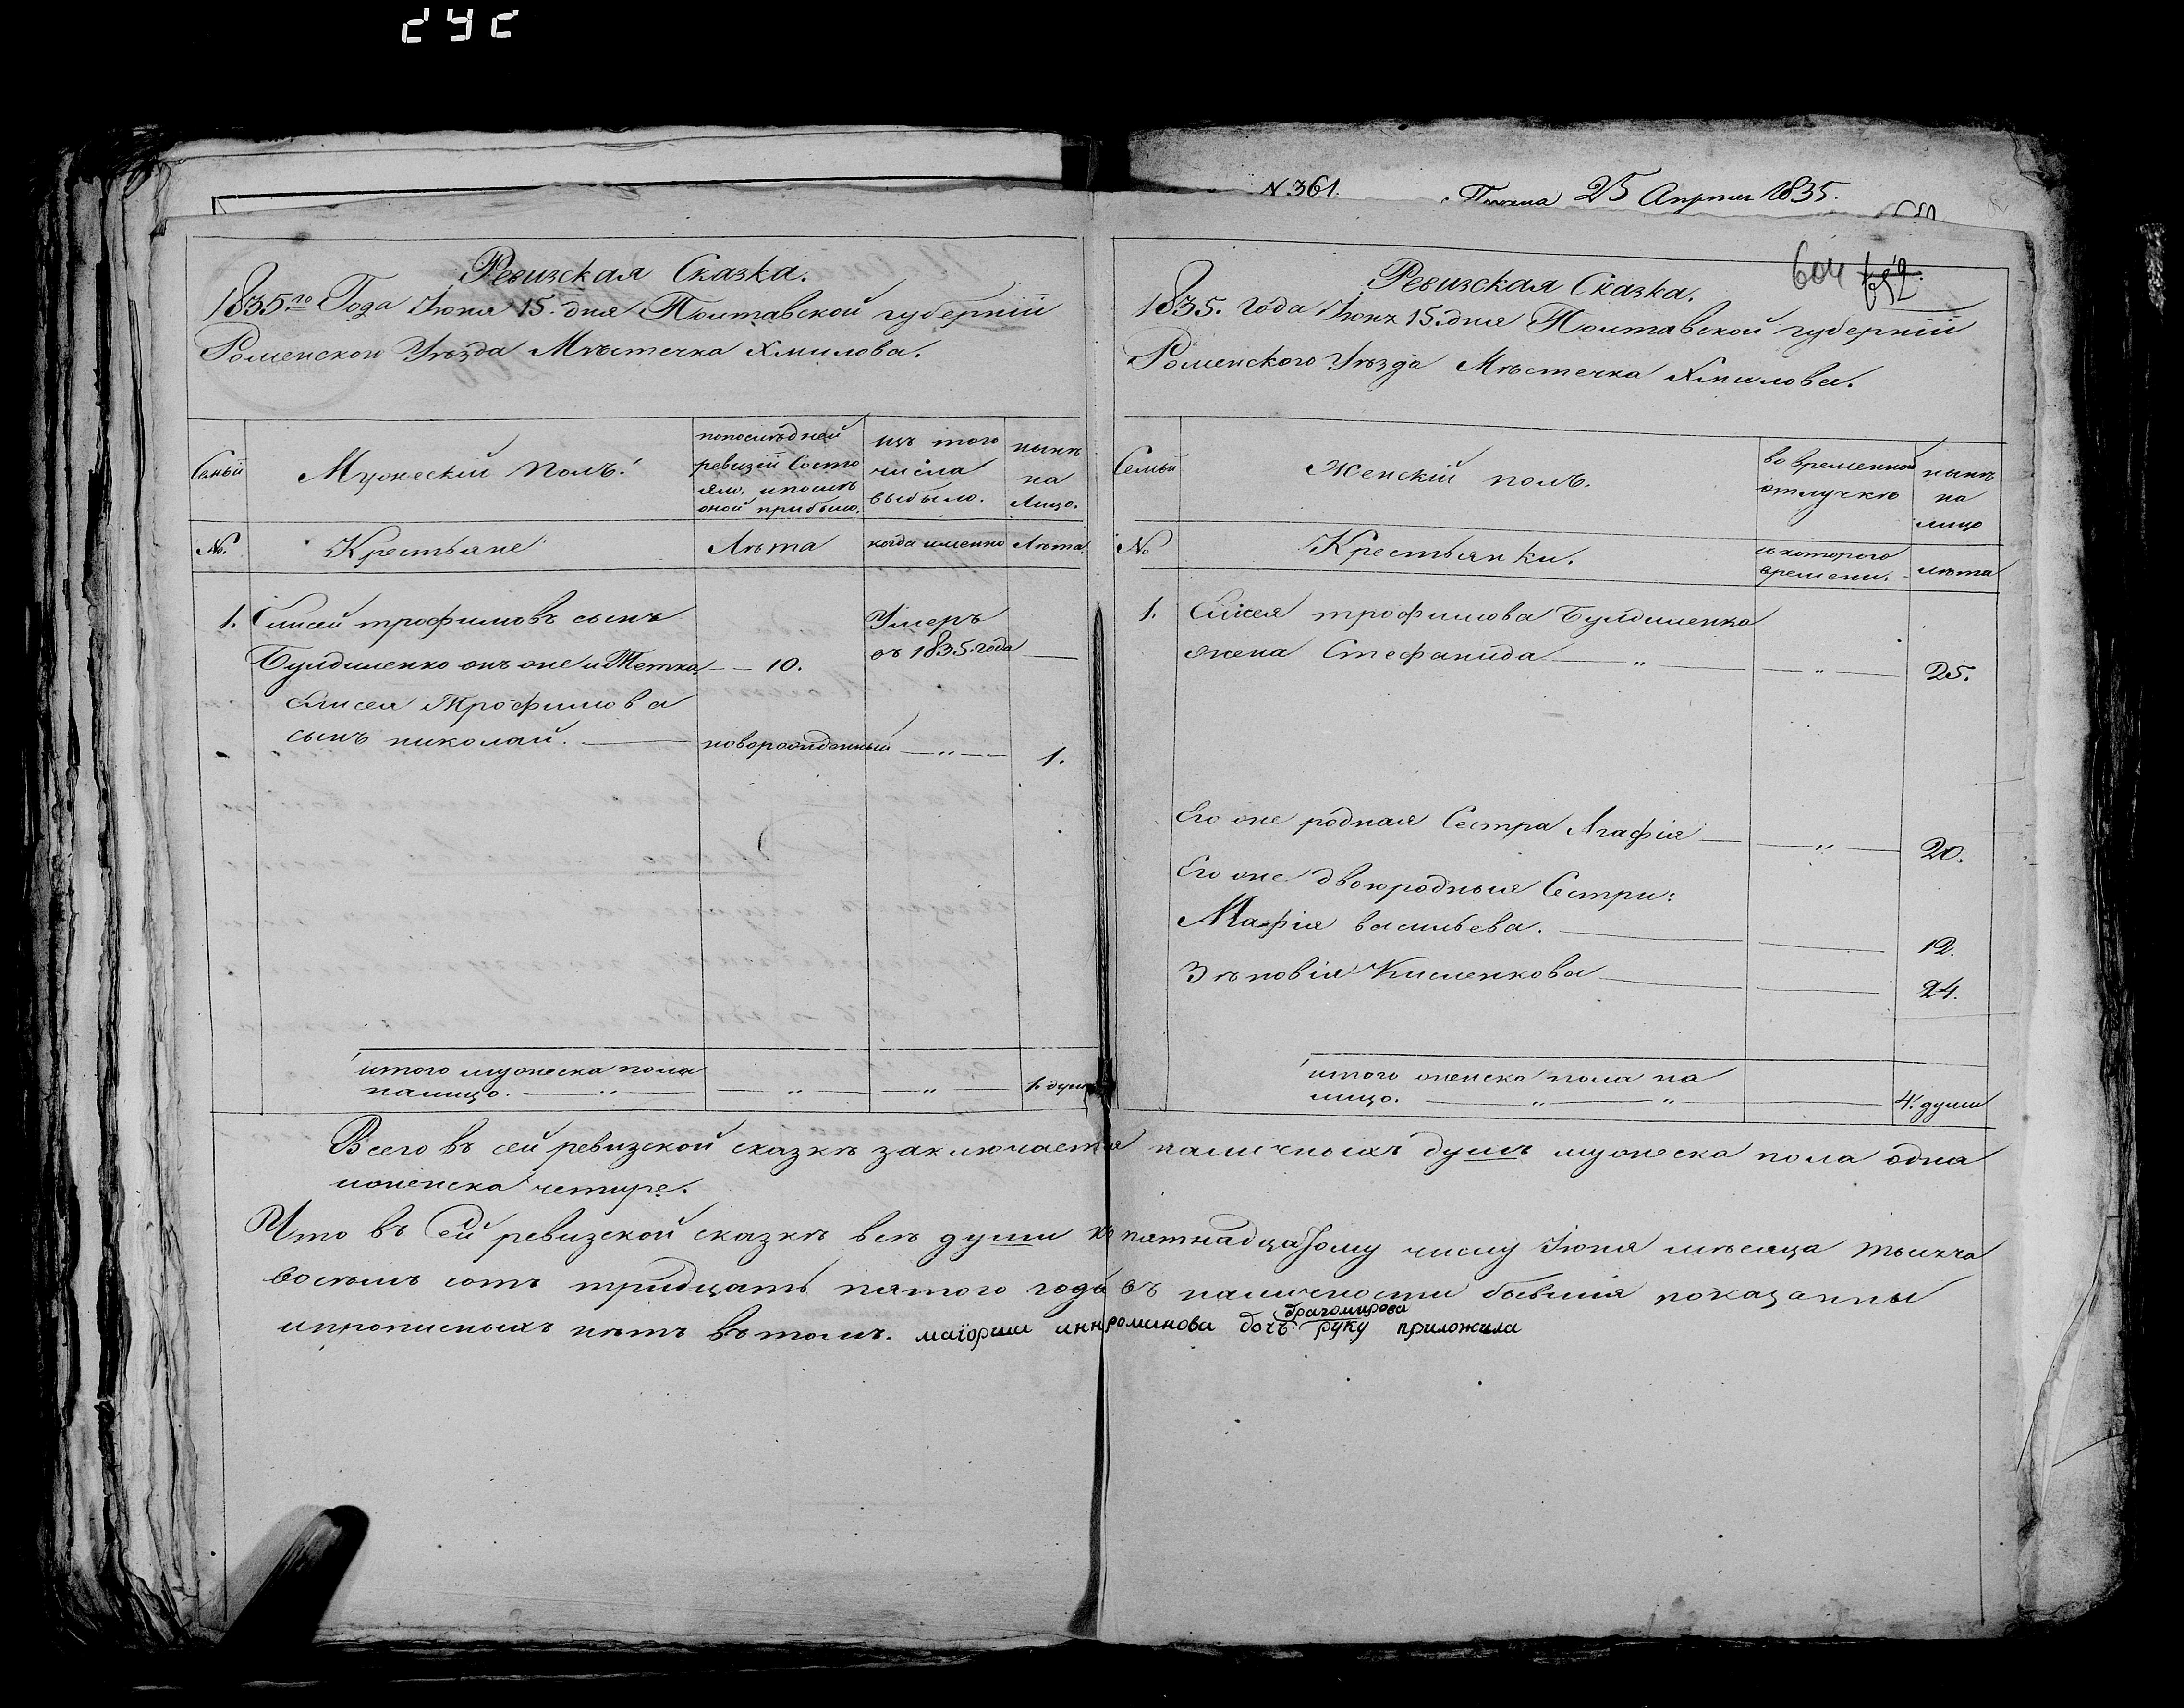 N 361. 25 Апреля 1835.
604 652.
Ревизская Сказка.
1835го Года Июня 15. дня Полтавской губернїй
Роменского Уѣзда Мѣстечка Хмилова.
Семьи
Мужескій полъ.
попослѣдней
ревизіи Состо
яло, ипослѣ
оной прибыло.
изъ того
числа
выбыло.
нынѣ
на
Лицо.
№.
Крестьяне
Лѣта
когда именно
Лѣта
1. Елисей трофимовъ сынъ
Булдиленко онъ же и Тетка — — 10.
Умеръ
въ 1835. года —
Елисея Трофимова
сынъ николай. — новорожденный — „ — 1.
итого мужеска пола
налицо. — „ — — „ — — „ — 1. душ
Ревизская Сказка.
1835. года Июня 15. дня Полтавской губернїй
Роменского Уѣзда Мѣстечка Хмилова.
Семьи
Женскій полъ.
во временной
отлучкѣ
нынѣ
на
лицо
№
Крестьянки.
съ которого
времени.
лѣта
1. Елисея трофимова Булдиленка
жена Стефанида — „ — — „ — 25.
Его же родная Сестра Агафія — — „ — 20.
Его же двоюродныя Сестри:
Марфія васильева. — — 12.
Зѣновія Кисленкова — — 24.
итого женска пола на
лицо. — „ — „ — 4. души
Всего въ сей ревизской сказкѣ заключается наличныхъ душъ мужеска пола одна
иженска четире.
Что въ сей ревизской сказкѣ всѣ души къ пятнадцатому числу Июня мѣсяца тысяча
восѣмъ сотъ тридцать пятого года въ наличности бывшія показанны
ипрописныхъ нѣтъ втомъ. маіорши анн романова дочъ драгомирова руку приложила